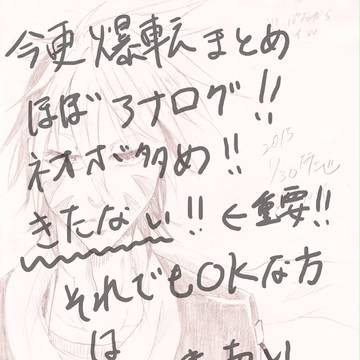 今更爆転まとめ
ほぼアナログ!!
ネオボ多め!!
きたない!!←重要!!
それでもOKな方
は
2015
1/30